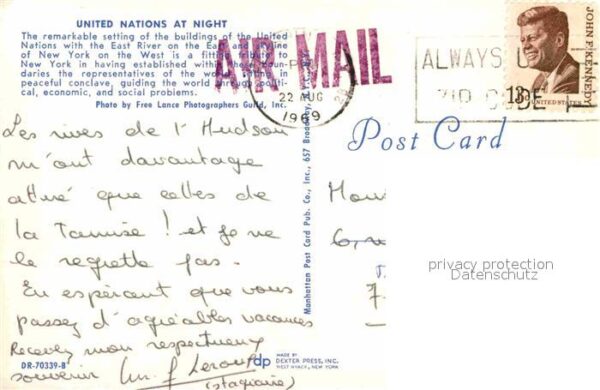 UNITED NATIONS AT NIGHT
The remarkable setting of the buildings of the United
Nations with the East River on the East and
of New York on the West is a fitting tribute to
New York in having established within
daries the representatives of the world
peaceful conclave, guiding the world through politi-
cal, economic, and social problems.
Photo by Free Lance Photographers Guild, Inc.
AIR MAIL
22 AUG
1969
ALWAYS
ZIP CODE
JOHN F. KENNEDY
13c
UNITED STATES
Post Card
Les rives de l'Hudson
m'ont davantage
attiré que celles de
la Tamise ! et je ne
le regrette pas.
En espérant que vous
passez d'agréables vacances
Recevez mon respectueux
souvenir
(stagiaire)
Manhattan Post Card Pub. Co., Inc., 657 Broadway,
privacy protection
Datenschutz
DR-70339-B
dp
MADE BY
DEXTER PRESS, INC.
WEST NYACK, NEW YORK